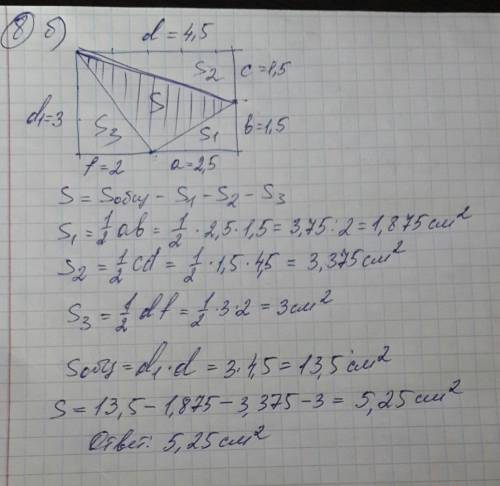 8 б)
d = 4,5
S₂ c = 1,5
S
d₁=3
S₃ S₁ b=1,5
f=2 a=2,5
S = Sобщ - S₁ - S₂ - S₃
S₁ = 1/2 ab = 1/2 · 2,5 · 1,5 = 3,75 : 2 = 1,875 см²
S₂ = 1/2 cd = 1/2 · 1,5 · 4,5 = 3,375 см²
S₃ = 1/2 df = 1/2 · 3 · 2 = 3 см²
Sобщ = d₁ · d = 3 · 4,5 = 13,5 см²
S = 13,5 - 1,875 - 3,375 - 3 = 5,25 см²
Ответ: 5,25 см²